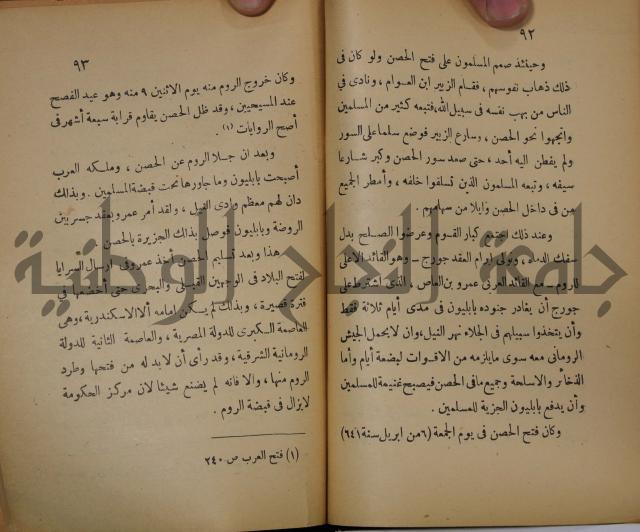 ٩٢
وحينئذ صمم المسلمون على فتح الحصن ولو كان فى
ذلك ذهاب نفوسهم ، فقام الزبير ابن العوام ، ونادى في
الناس من يهب نفسه فى سبيل الله، فتبعه كثير من المسلمين
واتجهوا نحو الحصن ، وسارع الزبير فوضع سلما على السور
ولم يفطن اليه أحد ، حتى صعد سور الحصن وكبر شارعا
سيفه ، وتبعه المسلمون الذين تسلقوا خلفه ، وأمطر الجميع
من فى داخل الحصن وابلا من سهامهم .
وعند ذلك اجتمع كبار القوم وعرضوا الصلح بدل
سفك الدماء، وتولى إبرام العقد جورج ــ وهو القائد الأعلى
للروم ــ مع القائد العربى عمرو بن العاص ، الذى اشترط على
جورج أن يغادر جنوده بابليون فى مدى أيام ثلاثة فقط
وأن يتخذوا سبيلهم فى الجلاء نهر النيل، وان لا يحمل الجيش
الرومانى معه سوى ما يلزمه من الاقوات لبضعة أيام وأما
الذخائر والاسلحة وجميع مافى الحصن فيصبح غنيمة للمسلمين
وأن يدفع بابليون الجزية للمسلمين .
وكان فتح الحصن فى يوم الجمعة (٦ من ابريل سنة ٦٤١)
٩٣
وكان خروج الروم منه يوم الاثنين ٩ منه وهو عيد الفصح
عند المسيحيين ، وقد ظل الحصن يقاوم قرابة سبعة أشهر فى
أصح الروايات (١) .
وبعد ان جلا الروم عن الحصن ، وملكه العرب
أصبحت بابليون وما جاورها تحت قبضة المسلمين . وبذلك
دان لهم معظم وادى النيل ، ولقد أمر عمرو بعقد جسر بين
الروضة وبابليون فوصل بذلك الجزيرة بالحصن .
هذا وبعد تسليم الحصن أخذ عمرو فى ارسال السرايا
لفتح البلاد فى الوجهين القبلى والبحرى حتى أخضعها فى
فترة قصيرة ، وبذلك لم يكن امامه ألا الاسكندرية ، وهى
العاصمة الكبرى للدولة المصرية ، والعاصمة الثانية للدولة
الرومانية الشرقية ، وقد رأى أن لابد له من فتحها وطرد
الروم منها ، والا فانه لم يضنع شيئا لان مركز الحكومة
لايزال فى قبضة الروم .
(١) فتح العرب ص ٢٤٠
جامعة النجاح الوطنية